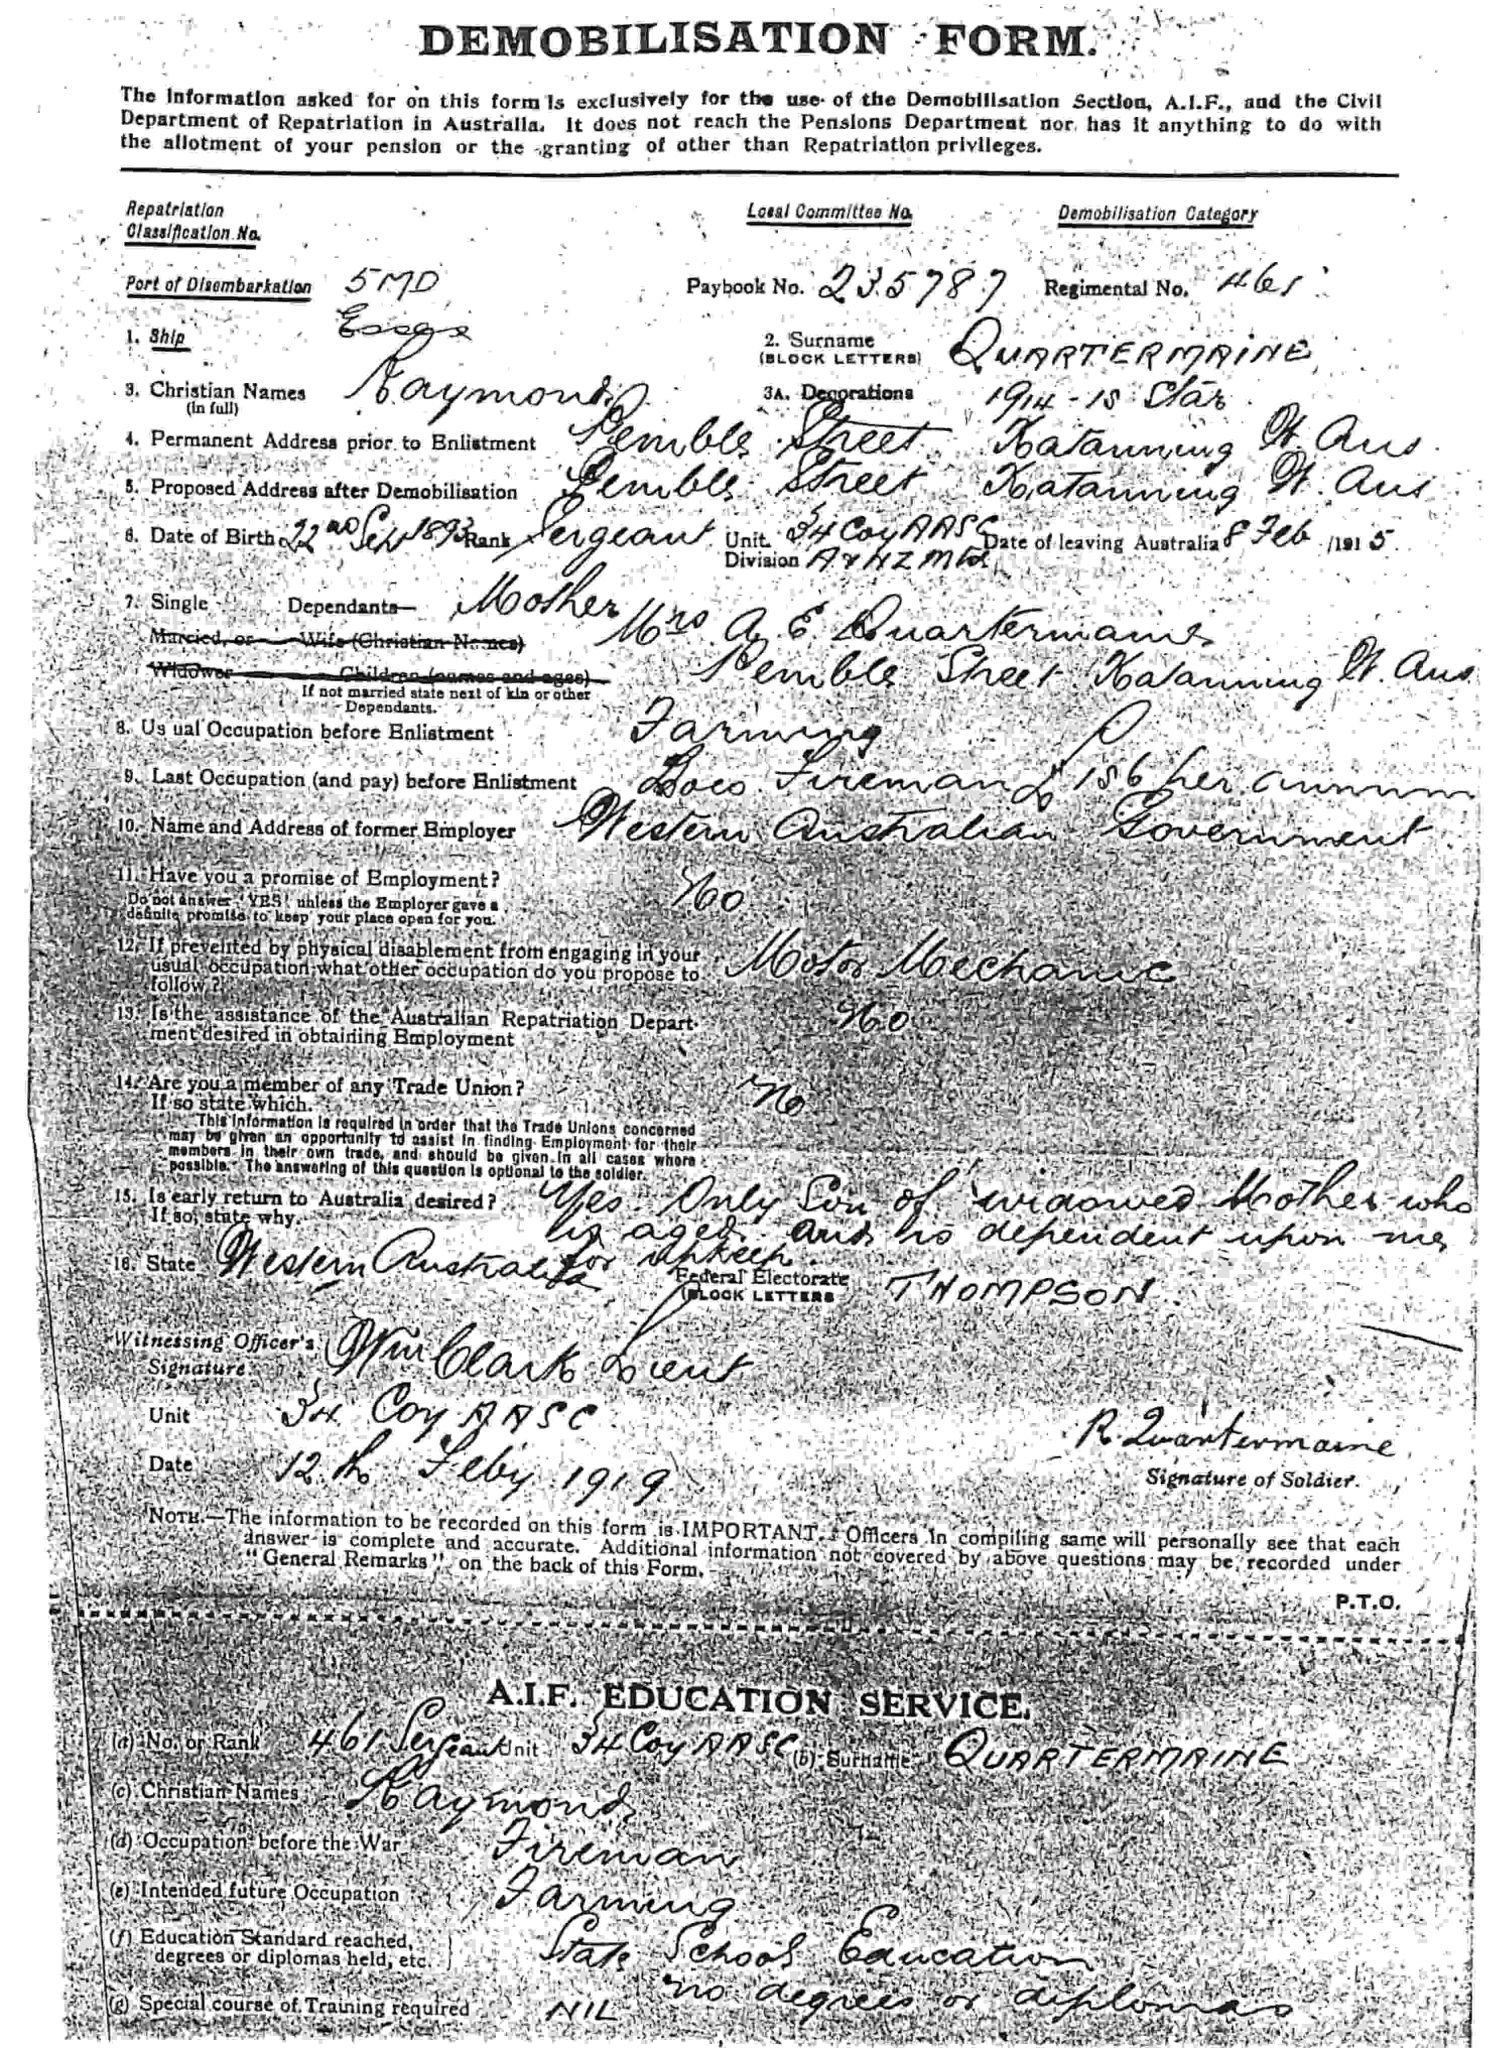 DEMOBILISATION FORM.
The information asked for on this form is exclusively for the use of the Demobilisation Section, A.I.F., and the Civil
Department of Repatriation in Australia. It does not reach the Pensions Department nor has it anything to do with
the allotment of your pension or the granting of other than Repatriation privileges.
Repatriation Classification No. Local Committee No. Demobilisation Category
Port of Disembarkation 5MD Paybook No. 235787 Regimental No. 461
1. Ship Essex 2. Surname (BLOCK LETTERS) QUARTERMAINE
3. Christian Names (in full) Raymond 3A. Decorations 1914-15 Star
4. Permanent Address prior to Enlistment Pemble Street Katanning W. Aus
5. Proposed Address after Demobilisation Pemble Street Katanning W. Aus
6. Date of Birth 22nd Sep 1893 Rank Sergeant Unit 34 Coy AASC Date of leaving Australia 8 Feb /1915
Division A & NZ Mtd
7. Single Dependants— Mother Mrs A E Quartermaine
Married, or Wife (Christian Names)
Widower Children (names and ages) Pemble Street Katanning W. Aus
If not married state next of kin or other
Dependants.
8. Usual Occupation before Enlistment Farming
9. Last Occupation (and pay) before Enlistment Loco Fireman £156 per annum
10. Name and Address of former Employer Western Australian Government
11. Have you a promise of Employment? No
Do not answer "YES" unless the Employer gave a
definite promise to keep your place open for you.
12. If prevented by physical disablement from engaging in your
usual occupation what other occupation do you propose to
follow? Motor Mechanic
13. Is the assistance of the Australian Repatriation Depart-
ment desired in obtaining Employment No
14. Are you a member of any Trade Union? No
If so state which.
This information is required in order that the Trade Unions concerned
may be given an opportunity to assist in finding Employment for their
members in their own trade, and should be given in all cases where
possible. The answering of this question is optional to the soldier.
15. Is early return to Australia desired? Yes. Only Son of widowed Mother who
If so, state why. is aged and is dependent upon me
for upkeep.
16. State Western Australia Federal Electorate (BLOCK LETTERS THOMPSON
Witnessing Officer's Signature Wm Clark Lieut
Unit 34 Coy AASC
R. Quartermaine
Date 12th Feby 1919
Signature of Soldier.
NOTE.—The information to be recorded on this form is IMPORTANT. Officers in compiling same will personally see that each
answer is complete and accurate. Additional information not covered by above questions may be recorded under
"General Remarks" on the back of this Form.
P.T.O.
A.I.F. EDUCATION SERVICE.
(a) No. or Rank 461 Sergeant Unit 34 Coy AASC (b) Surname QUARTERMAINE
(c) Christian Names Raymond
(d) Occupation before the War Fireman
(e) Intended future Occupation Farming
(f) Education Standard reached, State School Education
degrees or diplomas held, etc. no degrees or diplomas
(g) Special course of Training required NIL